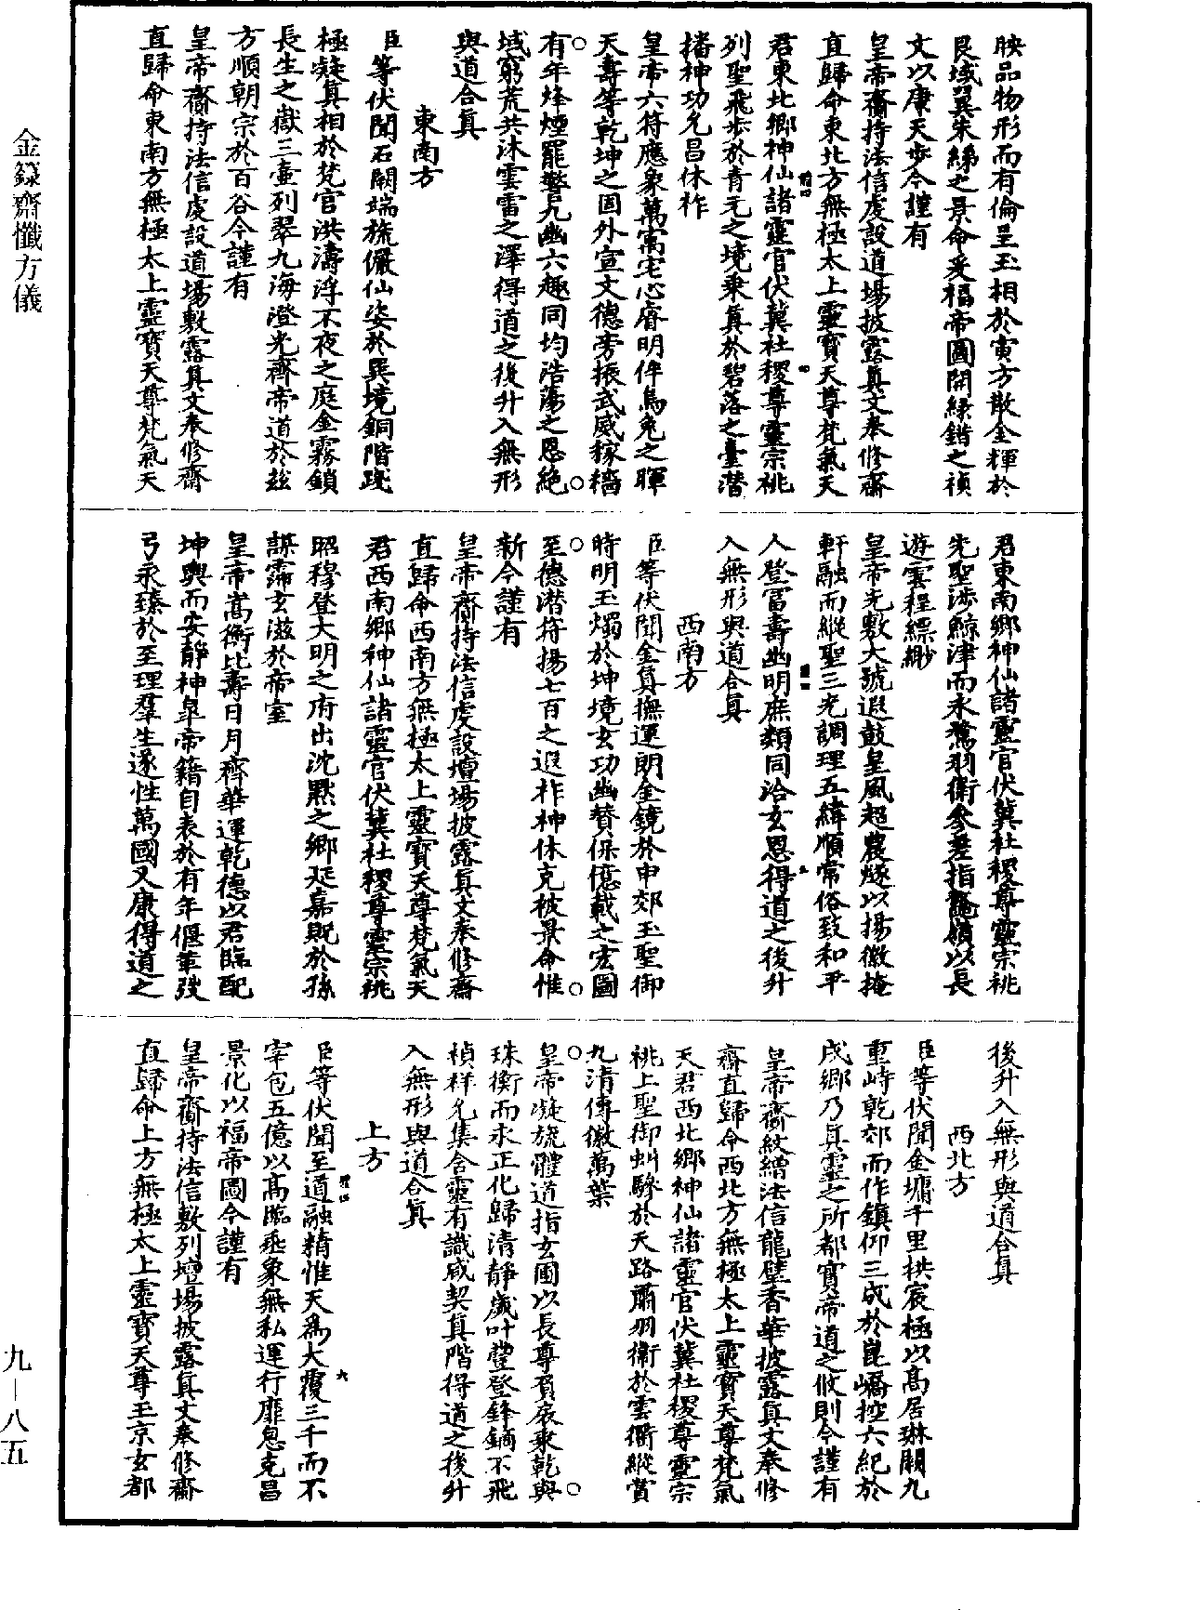 腴品物形而有倫呈玉相於寅方散金輝於
艮域異朱綈之景命爰福帝圖開綠錯之禎
文以康天步今謹有
皇帝齎持法信虔設道場披露真文奉修齋
直歸命東北方無極太上靈寶天尊梵氣天
君東北鄉神仙諸靈官伏冀社稷尊靈宗祧
列聖飛步於青元之境乘真於碧落之臺潛
播神功允昌休祚
皇帝六符應象萬㝢宅心睿明侔烏兔之暉
天壽等乾坤之固外宣文德旁振武威稼穡
有年烽煙罷警九幽六趣同均浩蕩之恩絕
域窮荒共沐雲雷之澤得道之後升入無形
與道合真
東南方
臣等伏聞石闕端旒儼仙姿於巽境銅階疏
極凝真相於梵官洪濤浮不夜之庭金霧鎖
長生之嶽三壺列翠九海澄光齊帝道於茲
方順朝宗於百谷今謹有
皇帝齎持法信虔設道場敷露真文奉修齋
直歸命東南方無極太上靈寶天尊梵氣天
君東南鄉神仙諸靈官伏冀社稷尊靈宗祧
先聖涉鯨津而永鶩羽衛參差指鼇嶺以長
遊雲程縹緲
皇帝光敷大號遐鼓皇風超農燧以揚徽掩
軒融而縱聖三光調理五緯順常俗致和平
人登富壽幽明庶類同洽玄恩得道之後升
入無形與道合真
西南方
臣等伏聞金真撫運朗金鏡於申郊玉聖御
時明玉燭於坤境玄功幽贊保億載之宏圖
至德潛符揚七百之遐祚神休克被景命惟
新今謹有
皇帝齎持法信虔設壇場披露真文奉修齋
直歸命西南方無極太上靈寶天尊梵氣天
君西南鄉神仙諸靈官伏冀社稷尊靈宗祧
昭穆登大明之府出沈默之鄉延嘉貺於孫
謀霈玄滋於帝室
皇帝嵩衡比壽日月齊華運乾德以君臨配
坤輿而安靜神臯帝籍自表於有年偃革弢
弓永臻於至理羣生遂性萬國乂康得道之
後升入無形與道合真
西北方
臣等伏聞金墉千里拱宸極以高居琳闕九
重峙乾郊而作鎮仰三成於崑嶠控六紀於
戌鄉乃真靈之所都實帝道之攸則今謹有
皇帝齎紋繒法信龍璧香華披露真文奉修
齋直歸命西北方無極太上靈寶天尊梵氣
天君西北鄉神仙諸靈官伏冀社稷尊靈宗
祧上聖御虯驂於天路肅羽衛於雲衢縱賞
九清傳徽萬葉
皇帝凝旒體道指玄圃以長尊負扆乘乾與
珠衡而永正化歸清靜歲叶豐登鋒鏑不飛
禎祥允集含靈有識咸契真階得道之後升
入無形與道合真
上方
臣等伏聞至道融精惟天為大覆三千而不
宰包五億以高臨垂象無私運行靡息克昌
景化以福帝圖今謹有
皇帝齎持法信敷列壇場披露真文奉修齋
直歸命上方無極太上靈寶天尊玉京玄都
金籙齋懺方儀
九－八五